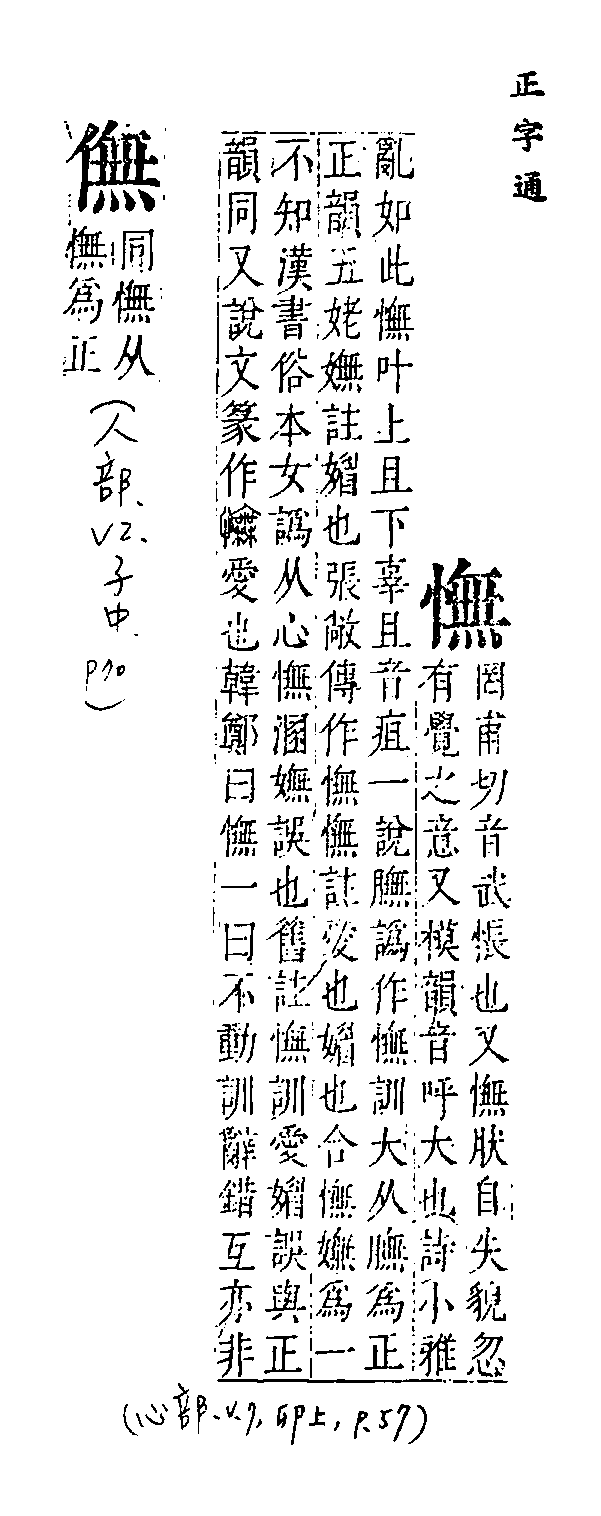 正字通
憮
罔甫切音武悵也又憮肰自失貌忽
有覺之意又模韻音呼大也詩小雅
亂如此憮叶上且下辜且音疽一說膴譌作憮訓大从膴為正
正韻五姥嫵註媚也張敞傳作憮憮註愛也媚也合憮嫵為一
不知漢書俗本女譌从心憮溷嫵誤也舊註憮訓愛媚誤與正
韻同又說文篆作愛也韓鄭曰憮一曰不動訓辭錯互亦非
(心部、V.7, 卯上, P.57)
僫
同憮从
憮為正
(人部、V2、子中、P70)